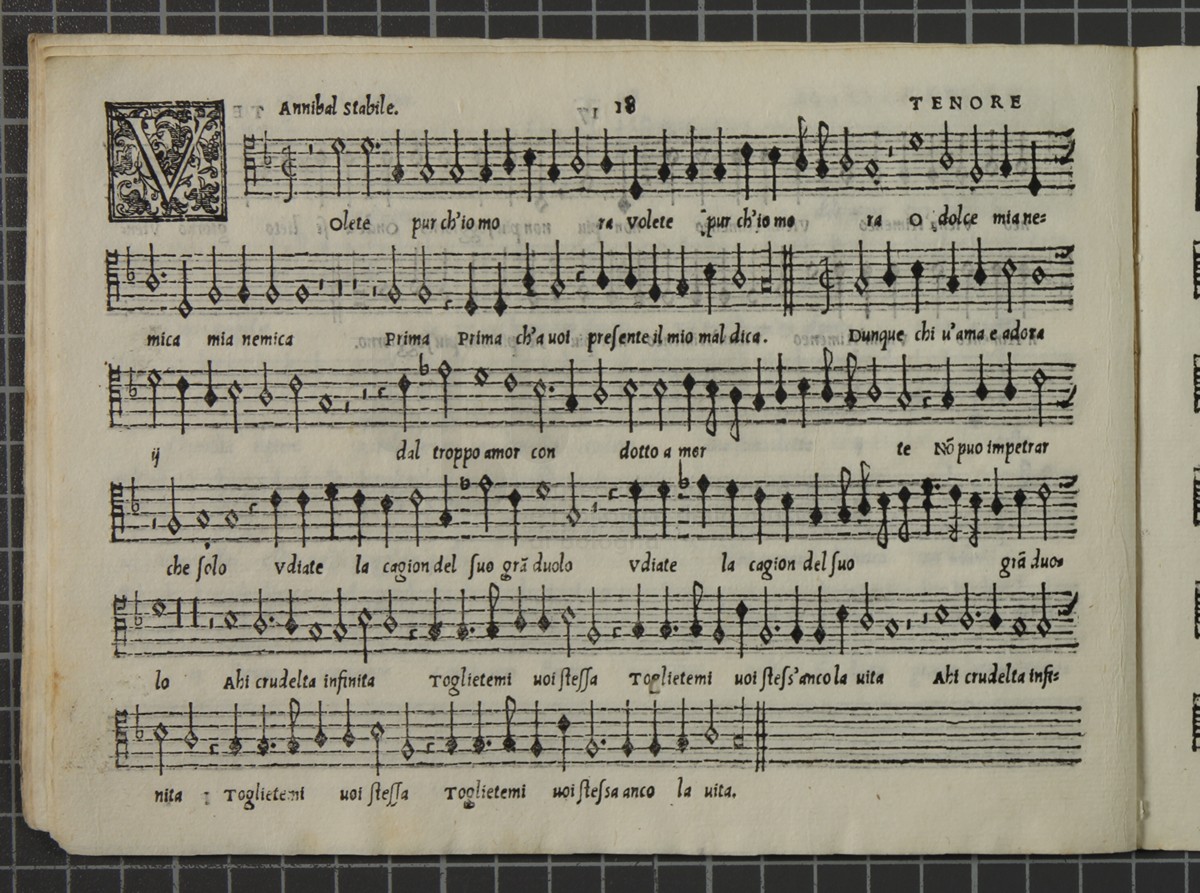 Annibal stabile. 18 TENORE
VOlete pur ch'io mo ra Volete pur ch'io mo ra O dolce mia ne=
mica mia nemica Prima Prima ch'a uoi presente il mio mal dica. Dunque chi u'ama e adora
ij dal troppo amor con dotto a mor te Nõ puo impetrar
che solo Vdiate la cagion del suo grã duolo Vdiate la cagion del suo grã duo=
lo Ahi crudelta infinita Toglietemi uoi stessa Toglietemi uoi stess'anco la uita Ahi crudelta infi=
nita Toglietemi uoi stessa Toglietemi uoi stessa anco la uita.